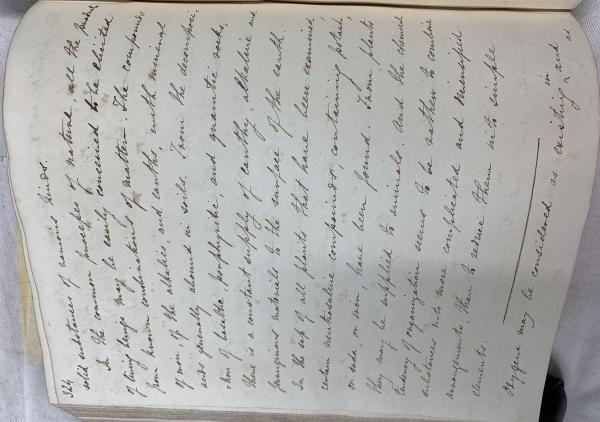 324
solid substances of various kinds.
In the common processes of nature, all the products
of living beings may be easily conceived to be elicited
from known combinations of matter. The compounds
of iron of the alkalies, and earths, with mineral
acids generally abound in soils. From the decomposi-
-tion of basaltic, porphyritic, and granitic rocks,
there is a constant supply of earthy, alkaline and
ferruginous materials to the surface of the earth.
In the sap of all plants that have been examined
certain neutrosaline compounds, containing potash
or soda, or iron, have been found. From plants
they may be supplied to animals. And the chemical
tendency of organization seems to be rather to combine
substances into more complicated and diversified
arrangements, than to reduce them into simple
elements.
Oxygene may be considered as existing in and as